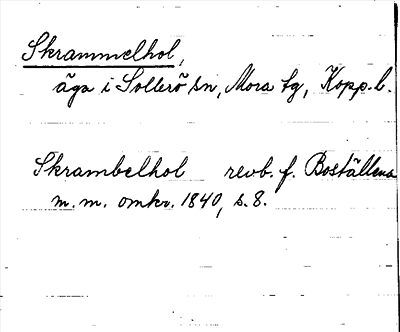 Skrammelhol,
äga i Sollerö sn, Mora tg, Kopp. l.
Skrambelhol revb. f. Boställena
m. m. omkr. 1840, s. 8.